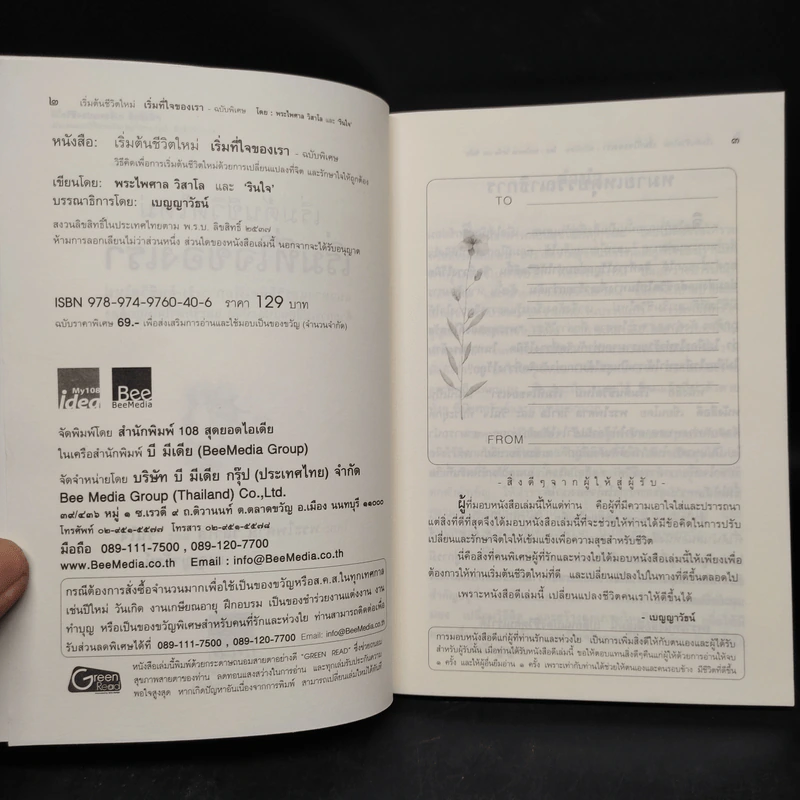 ๒ เริ่มต้นชีวิตใหม่ เริ่มที่ใจของเรา - ฉบับพิเศษ โดย : พระไพศาล วิสาโล และ 'รินใจ'
หนังสือ: เริ่มต้นชีวิตใหม่ เริ่มที่ใจของเรา - ฉบับพิเศษ
วิธีคิดเพื่อการเริ่มต้นชีวิตใหม่ด้วยการเปลี่ยนแปลงที่จิต และรักษาใจให้ถูกต้อง
เขียนโดย: พระไพศาล วิสาโล และ 'รินใจ'
บรรณาธิการโดย: เบญญาวัธน์
สงวนลิขสิทธิ์ในประเทศไทยตาม พ.ร.บ. ลิขสิทธิ์ ๒๕๓๗
ห้ามการลอกเลียนไม่ว่าส่วนหนึ่ง ส่วนใดของหนังสือเล่มนี้ นอกจากจะได้รับอนุญาต
ISBN 978-974-9760-40-6 ราคา 129 บาท
ฉบับราคาพิเศษ 69.- เพื่อส่งเสริมการอ่านและใช้มอบเป็นของขวัญ (จำนวนจำกัด)
My108 idea Bee BeeMedia
จัดพิมพ์โดย สำนักพิมพ์ 108 สุดยอดไอเดีย
ในเครือสำนักพิมพ์ บี มีเดีย (BeeMedia Group)
จัดจำหน่ายโดย บริษัท บี มีเดีย กรุ๊ป (ประเทศไทย) จำกัด
Bee Media Group (Thailand) Co.,Ltd.
๓๙/๔๓๖ หมู่ ๑ ซ.เรวดี ๙ ถ.ติวานนท์ ต.ตลาดขวัญ อ.เมือง นนทบุรี ๑๑๐๐๐
โทรศัพท์ ๐๒-๙๕๑-๕๕๗๗ โทรสาร ๐๒-๙๕๑-๕๕๗๘
มือถือ 089-111-7500 , 089-120-7700
www.BeeMedia.co.th Email : info@BeeMedia.co.th
กรณีต้องการสั่งซื้อจำนวนมากเพื่อใช้เป็นของขวัญหรือส.ค.ส.ในทุกเทศกาล
เช่นปีใหม่ วันเกิด งานเกษียณอายุ ฝึกอบรม เป็นของชำร่วยงานแต่งงาน งาน
ทำบุญ หรือเป็นของขวัญพิเศษสำหรับคนที่รักและห่วงใย ท่านสามารถติดต่อเพื่อ
รับส่วนลดพิเศษได้ที่ 089-111-7500 , 089-120-7700 Email: info@BeeMedia.co.th
Green Read
หนังสือเล่มนี้พิมพ์ด้วยกระดาษถนอมสายตาอย่างดี "GREEN READ" ซึ่งช่วยถนอม
สุขภาพสายตาของท่าน ลดทอนแสงสว่างในการอ่าน และทุกเล่มรับประกันความ
พอใจสูงสุด หากเกิดปัญหาอันเนื่องจากการพิมพ์ สามารถเปลี่ยนเล่มใหม่ได้ทันที
๓
TO
FROM
- สิ่งดีๆจากผู้ให้สู่ผู้รับ -
ผู้ที่มอบหนังสือเล่มนี้ให้แด่ท่าน คือผู้ที่มีความเอาใจใส่และปรารถนา
แต่สิ่งที่ดีที่สุดจึงได้มอบหนังสือเล่มนี้ที่จะช่วยให้ท่านได้มีข้อคิดในการปรับ
เปลี่ยนและรักษาจิตใจให้เข้มแข็งเพื่อความสุขสำหรับชีวิต
นี่คือสิ่งที่คนพิเศษผู้ที่รักและห่วงใยได้มอบหนังสือเล่มนี้ให้เพียงเพื่อ
ต้องการให้ท่านเริ่มต้นชีวิตใหม่ที่ดี และเปลี่ยนแปลงไปในทางที่ดีขึ้นตลอดไป
เพราะหนังสือดีเล่มนี้ เปลี่ยนแปลงชีวิตคนเราให้ดีขึ้นได้
- เบญญาวัธน์
การมอบหนังสือดีแก่ผู้ที่ท่านรักและห่วงใย เป็นการเพิ่มสิ่งดีให้กับตนเองและผู้ได้รับ
สำหรับผู้รับนั้น เมื่อท่านได้รับหนังสือดีเล่มนี้ ขอให้ตอบแทนสิ่งดีๆคืนแก่ผู้ให้ด้วยการอ่านให้จบ
๑ ครั้ง และให้ผู้อื่นยืมอ่าน ๑ ครั้ง เพราะเท่ากับท่านได้ช่วยให้ตนเองและคนรอบข้าง มีชีวิตที่ดีขึ้น